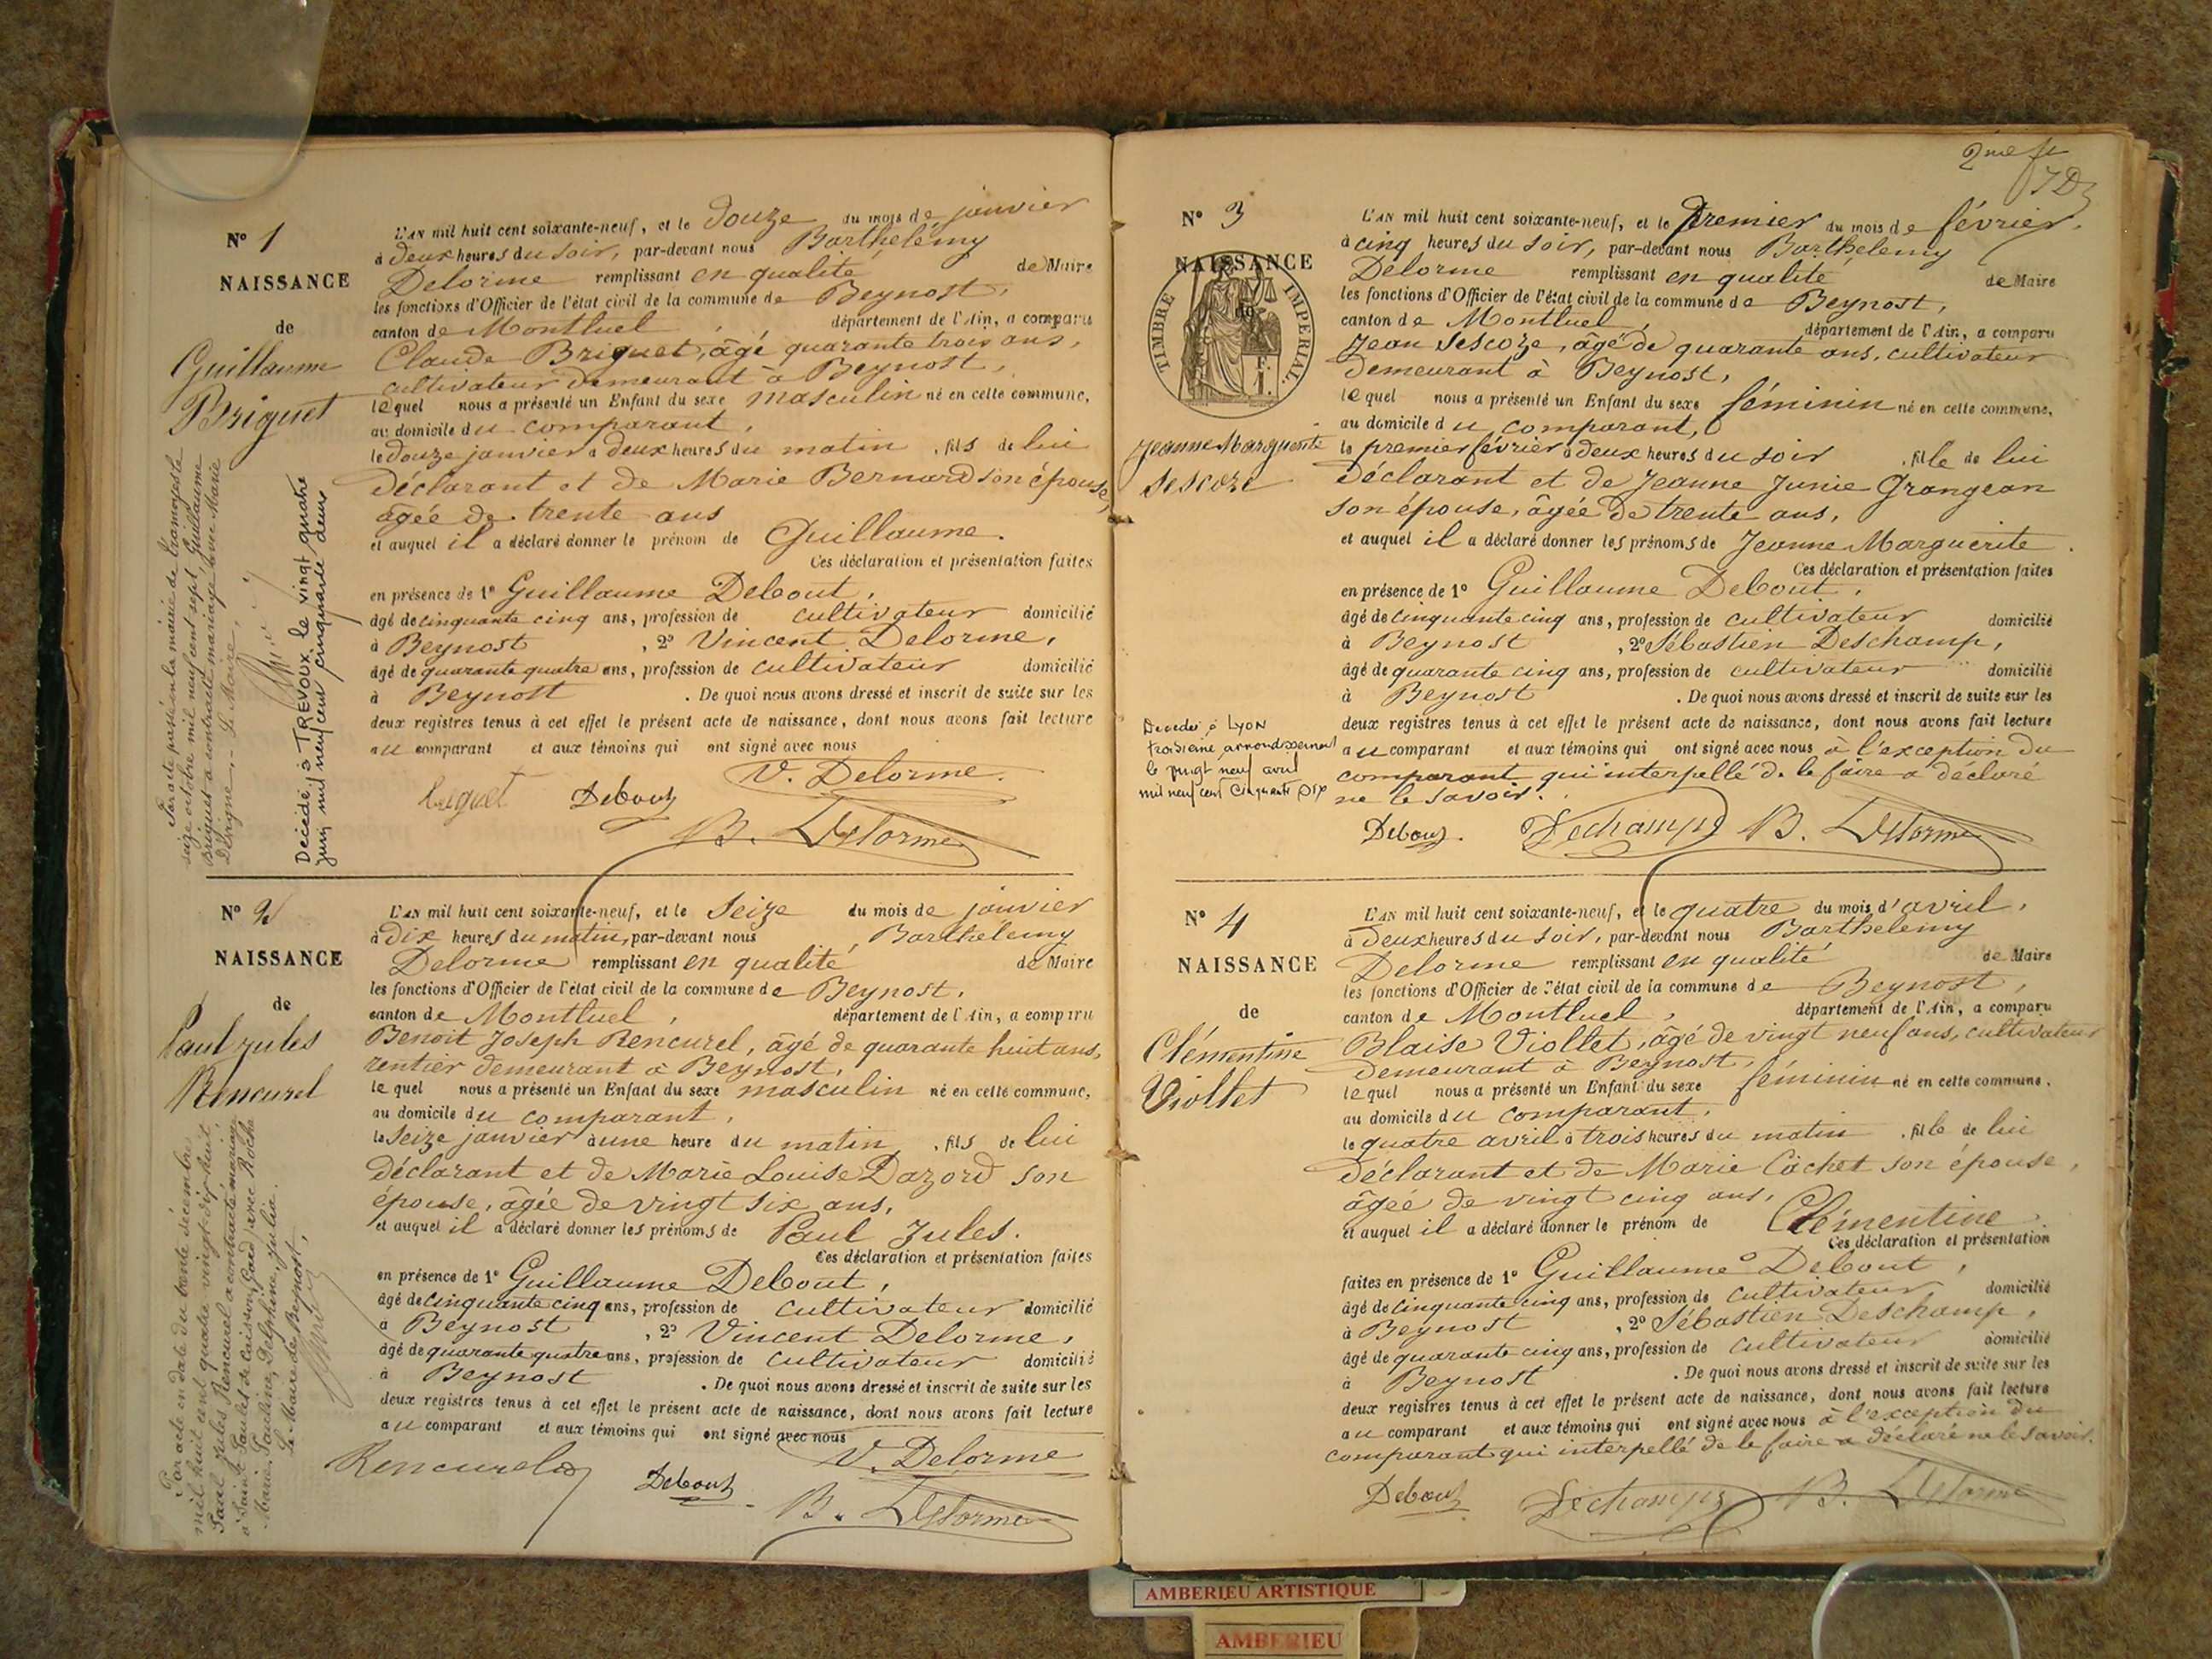 N° 1
NAISSANCE
de
Guillaume
Briguet
L'AN mil huit cent soixante-neuf, et le douze du mois de janvier
à deux heures du soir, par-devant nous Barthelémy
Delorme remplissant en qualité de Maire
les fonctions d'Officier de l'état civil de la commune de Beynost,
canton de Montluel, département de l'Ain, a comparu
Claude Briguet, âgé quarante trois ans,
cultivateur demeurant à Beynost,
lequel nous a présenté un Enfant du sexe masculin né en cette commune,
au domicile du comparant,
le douze janvier à deux heures du matin, fils de lui
déclarant et de Marie Bernard son épouse,
âgée de trente ans
et auquel il a déclaré donner le prénom de Guillaume.
Ces déclaration et présentation faites
en présence de 1° Guillaume Debout,
âgé de cinquante cinq ans, profession de cultivateur domicilié
à Beynost, 2° Vincent Delorme,
âgé de quarante quatre ans, profession de cultivateur domicilié
à Beynost. De quoi nous avons dressé et inscrit de suite sur les
deux registres tenus à cet effet le présent acte de naissance, dont nous avons fait lecture
au comparant et aux témoins qui ont signé avec nous
V. Delorme.
Debout
B. Delorme
Par acte passé en la mairie de Tramoyes le
seize octobre mil neuf cent sept, Guillaume
Briguet a contracté mariage avec Marie
Le Maire,
Décédé à TREVOUX le vingt quatre
juin mil neuf cent cinquante deux
N° 2
NAISSANCE
de
Paul Jules
Rencurel
L'AN mil huit cent soixante-neuf, et le seize du mois de janvier
à dix heures du matin, par-devant nous Barthelemy
Delorme remplissant en qualité de Maire
les fonctions d'Officier de l'état civil de la commune de Beynost,
canton de Montluel, département de l'Ain, a comparu
Benoit Joseph Rencurel, âgé de quarante huit ans,
rentier demeurant à Beynost,
lequel nous a présenté un Enfant du sexe masculin né en cette commune,
au domicile du comparant,
le seize janvier à une heure du matin, fils de lui
déclarant et de Marie Louise Dazord son
épouse, âgée de vingt six ans,
et auquel il a déclaré donner les prénoms de Paul Jules.
Ces déclaration et présentation faites
en présence de 1° Guillaume Debout,
âgé de cinquante cinq ans, profession de cultivateur domicilié
à Beynost, 2° Vincent Delorme,
âgé de quarante quatre ans, profession de cultivateur domicilié
à Beynost. De quoi nous avons dressé et inscrit de suite sur les
deux registres tenus à cet effet le présent acte de naissance, dont nous avons fait lecture
au comparant et aux témoins qui ont signé avec nous
V. Delorme
Rencurel
Debout
B. Delorme
Par acte en date du trente décembre
mil huit cent quatre vingt dix huit,
Paul Jules Rencurel a contracté mariage
à Saint Paulet de Caisson, Gard, avec Roche
Marie, Pauline, Delphine, Julie.
Le Maire de Beynost,
2me f
N° 3
NAISSANCE
de
TIMBRE IMPERIAL.
Jeanne Marguerite
Sescoze
L'AN mil huit cent soixante-neuf, et le premier du mois de février,
à cinq heures du soir, par-devant nous Barthelemy
Delorme remplissant en qualité de Maire
les fonctions d'Officier de l'état civil de la commune de Beynost,
canton de Montluel, département de l'Ain, a comparu
Jean Sescoze, âgé de quarante ans, cultivateur
demeurant à Beynost,
lequel nous a présenté un Enfant du sexe féminin né en cette commune,
au domicile du comparant,
le premier février à deux heures du soir, fille de lui
déclarant et de Jeanne Junie Grangean
son épouse, âgée de trente ans,
et auquel il a déclaré donner les prénoms de Jeanne Marguerite.
Ces déclaration et présentation faites
en présence de 1° Guillaume Debout,
âgé de cinquante cinq ans, profession de cultivateur domicilié
à Beynost, 2° Sébastien Deschamp,
âgé de quarante cinq ans, profession de cultivateur domicilié
à Beynost. De quoi nous avons dressé et inscrit de suite sur les
deux registres tenus à cet effet le présent acte de naissance, dont nous avons fait lecture
au comparant et aux témoins qui ont signé avec nous à l'exception du
comparant qui interpellé de le faire a déclaré
ne le savoir.
Debout. Dechamps B. Delorme
Decedée à LYON
troisième arrondissement
le vingt neuf avril
mil neuf cent cinquante six
N° 4
NAISSANCE
de
Clémentine
Viollet
L'AN mil huit cent soixante-neuf, et le quatre du mois d'avril,
à deux heures du soir, par-devant nous Barthelemy
Delorme remplissant en qualité de Maire
les fonctions d'Officier de l'état civil de la commune de Beynost,
canton de Montluel, département de l'Ain, a comparu
Blaise Viollet, âgé de vingt neuf ans, cultivateur
demeurant à Beynost,
lequel nous a présenté un Enfant du sexe féminin né en cette commune,
au domicile du comparant,
le quatre avril à trois heures du matin, fille de lui
déclarant et de Marie Cachet son épouse,
âgée de vingt cinq ans,
et auquel il a déclaré donner le prénom de Clémentine
Ces déclaration et présentation
faites en présence de 1° Guillaume Debout,
âgé de cinquante cinq ans, profession de cultivateur domicilié
à Beynost, 2° Sébastien Deschamp,
âgé de quarante cinq ans, profession de cultivateur domicilié
à Beynost. De quoi nous avons dressé et inscrit de suite sur les
deux registres tenus à cet effet le présent acte de naissance, dont nous avons fait lecture
au comparant et aux témoins qui ont signé avec nous à l'exception du
comparant qui interpellé de le faire a déclaré ne le savoir.
Debout Dechamps B. Delorme
AMBERIEU ARTISTIQUE
AMBERIEU